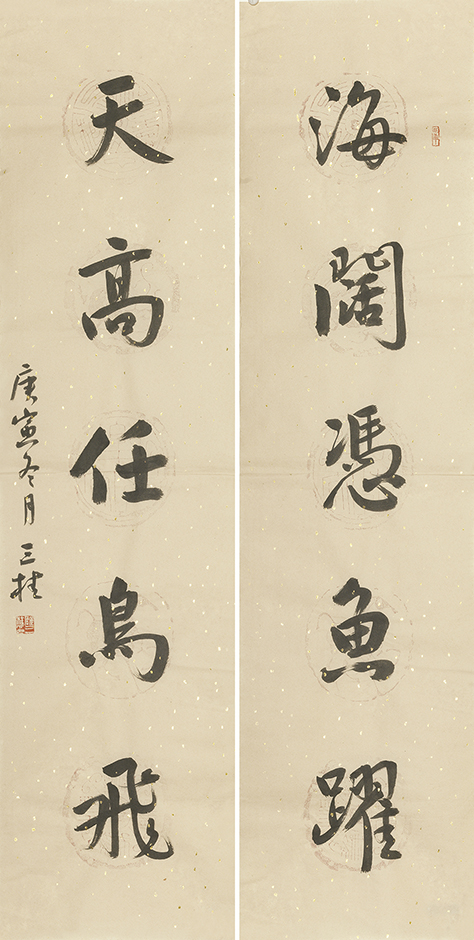 海闊憑魚躍
天高任鳥飛
庚寅冬月 三桂